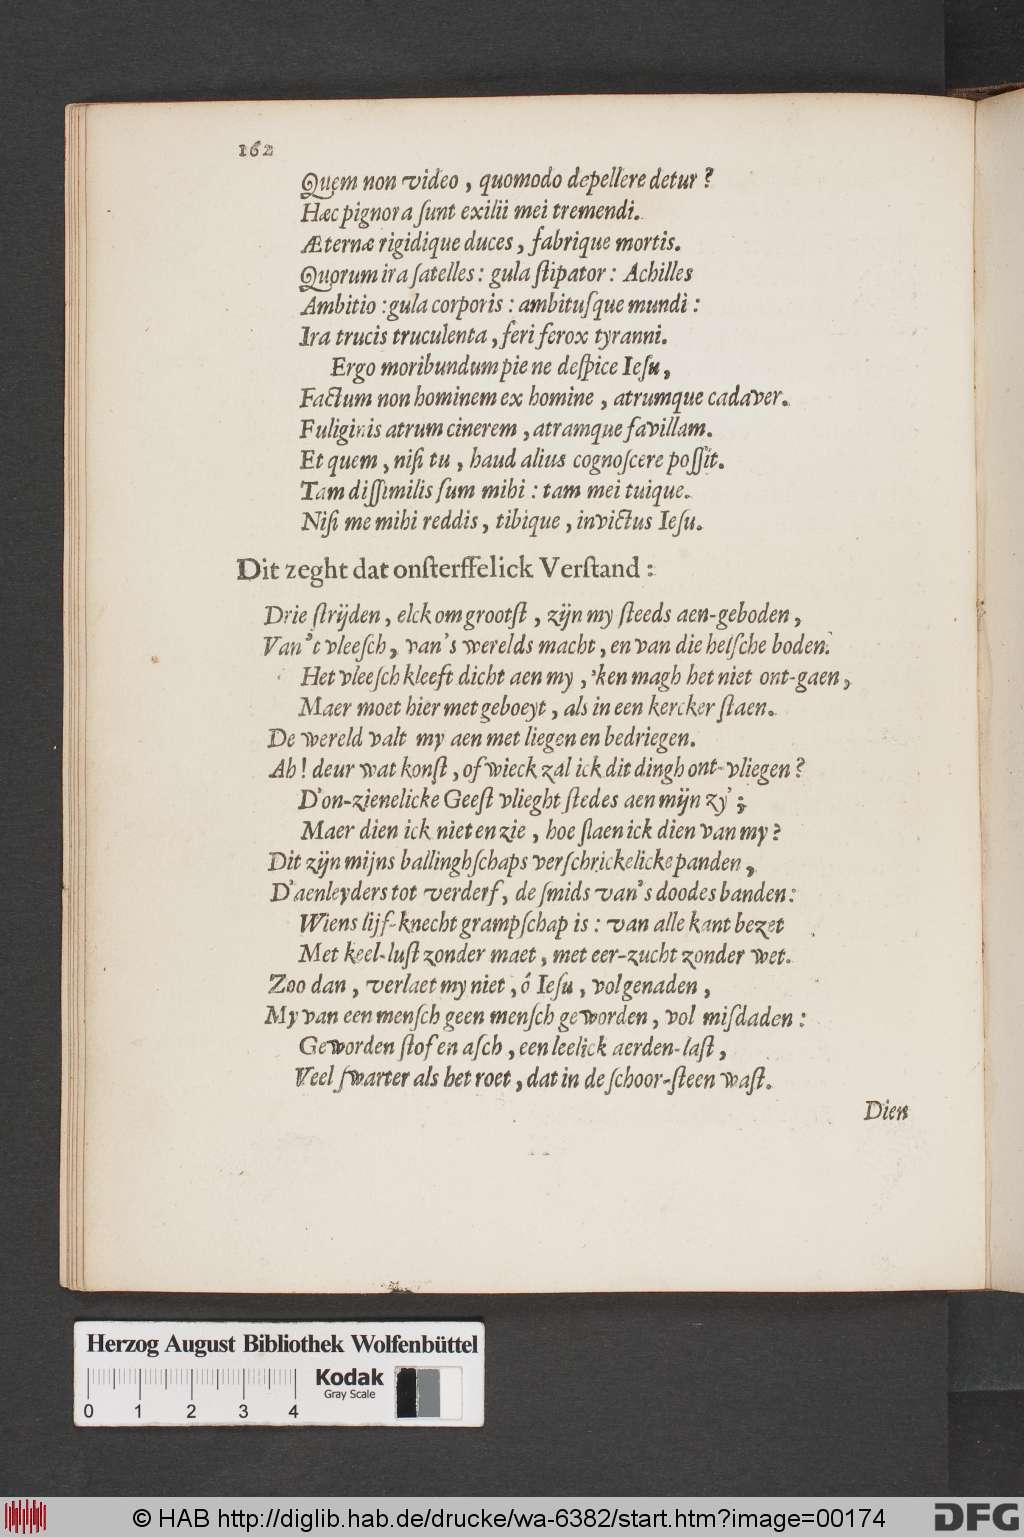 162
Quem non video, quomodo depellere detur?
Hæc pignora ſunt exilii mei tremendi.
Æternæ rigidique duces, fabrique mortis.
Quorum ira ſatelles: gula ſtipator: Achilles
Ambitio: gula corporis: ambituſque mundi:
Ira trucis truculenta, feri ferox tyranni.
Ergo moribundum pie ne deſpice Ieſu,
Factum non hominem ex homine, atrumque cadaver.
Fuliginis atrum cinerem, atramque favillam.
Et quem, niſi tu, haud alius cognoſcere poſſit.
Tam diſſimilis ſum mihi: tam mei tuique.
Niſi me mihi reddis, tibique, invictus Ieſu.
Dit zeght dat onſterffelick Verſtand:
Drie ſtrijden, elck om grootſt, zijn my ſteeds aen-geboden,
Van't vleeſch, van's werelds macht, en van die helſche boden.
Het vleeſch kleeft dicht aen my, 'ken magh het niet ont-gaen,
Maer moet hier met geboeyt, als in een kercker ſtaen.
De wereld valt my aen met liegen en bedriegen.
Ah! deur wat konſt, of wieck zal ick dit dingh ont-vliegen?
D'on-zienelicke Geeſt vlieght ſtedes aen mijn zy';
Maer dien ick niet en zie, hoe ſlaen ick dien van my?
Dit zijn mijns ballinghſchaps verſchrickelicke panden,
D'aenleyders tot verderf, de ſmids van's doodes banden:
Wiens lijf-knecht grampſchap is: van alle kant bezet
Met keel-luſt zonder maet, met eer-zucht zonder wet.
Zoo dan, verlaet my niet, ó Ieſu, vol genaden,
My van een menſch geen menſch geworden, vol miſdaden:
Geworden ſtof en aſch, een leelick aerden-laſt,
Veel ſwarter als het roet, dat in de ſchoor-ſteen waſt.
Dien
Herzog August Bibliothek Wolfenbüttel
Kodak
Gray Scale
0 1 2 3 4
© HAB http://diglib.hab.de/drucke/wa-6382/start.htm?image=00174
DFG